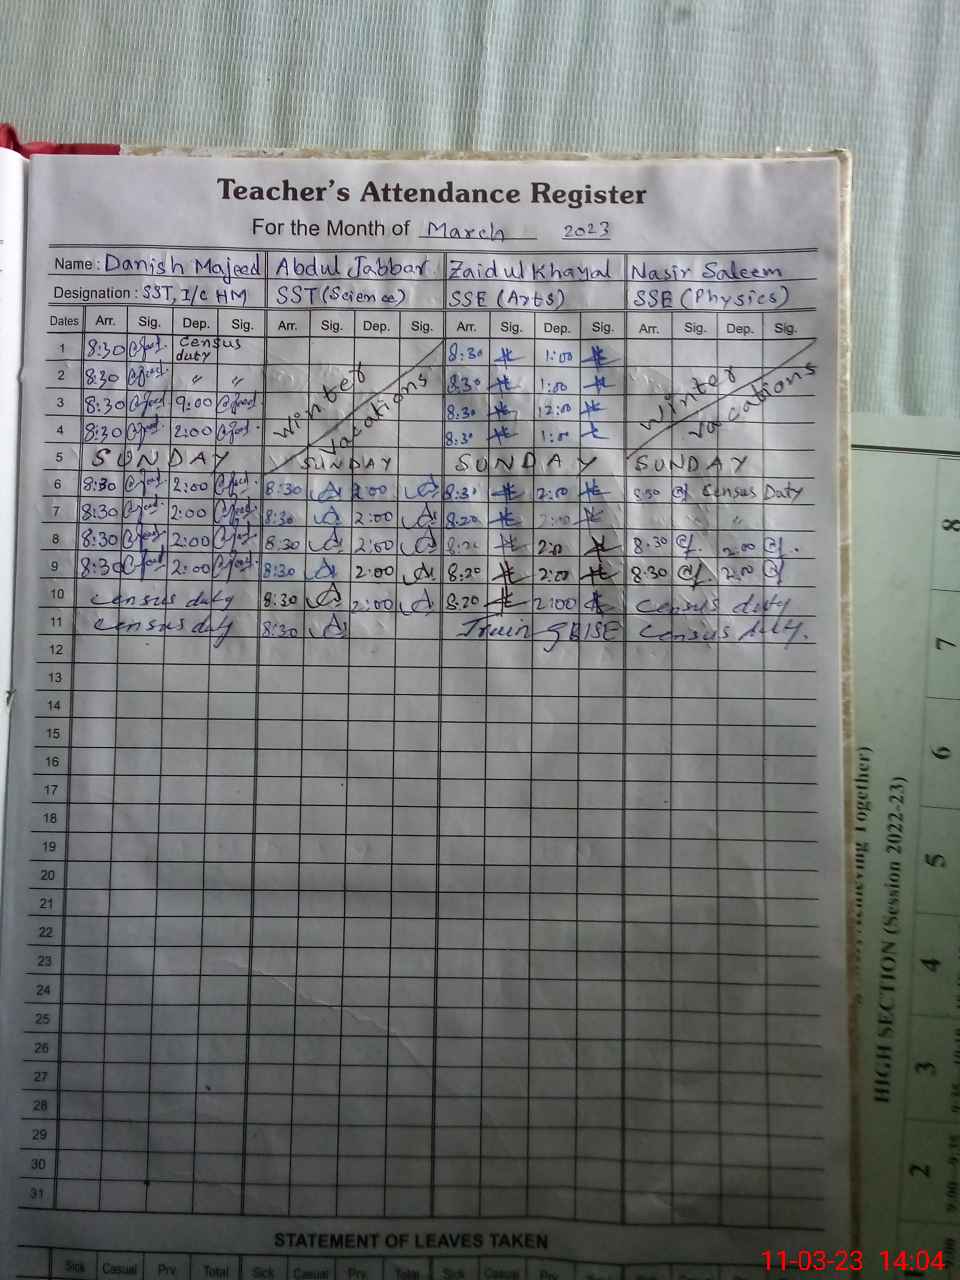 Teacher's Attendance Register
For the Month of March 2023
Name : Danish Majeed Abdul Jabbar Zaidul Khayal Nasir Saleem
Designation : SST, I/C HM SST (Science) SSE (Arts) SSE (Physics)
Dates Arr. Sig. Dep. Sig. Arr. Sig. Dep. Sig. Arr. Sig. Dep. Sig. Arr. Sig. Dep. Sig.
1 8:30 Census duty 8:30 1:00
2 8:30 " " 8:30 1:00
3 8:30 9:00 Winter vacations 8:30 12:00 Winter vacations
4 8:30 2:00 8:30 1:00
5 SUNDAY SUNDAY SUNDAY SUNDAY
6 8:30 2:00 8:30 2:00 8:30 2:00 8:30 Census Duty
7 8:30 2:00 8:30 2:00 8:20 2:00 "
8 8:30 2:00 8:30 2:00 8:20 2:00 8:30 2:00
9 8:30 2:00 8:30 2:00 8:20 2:00 8:30 2:00
10 Census duty 8:30 2:00 8:20 2:00 Census duty
11 Census duty 8:30 Census duty.
12
13
14
15
16
17
18
19
20
21
22
23
24
25
26
27
28
29
30
31
STATEMENT OF LEAVES TAKEN
Sick Casual Prv. Total Sick Casual Prv. Total Sick Casual Prv. Total Sick Casual Prv. Total
HIGH SECTION (Session 2022-23)
2 3 4 5 6 7 8
11-03-23 14:04